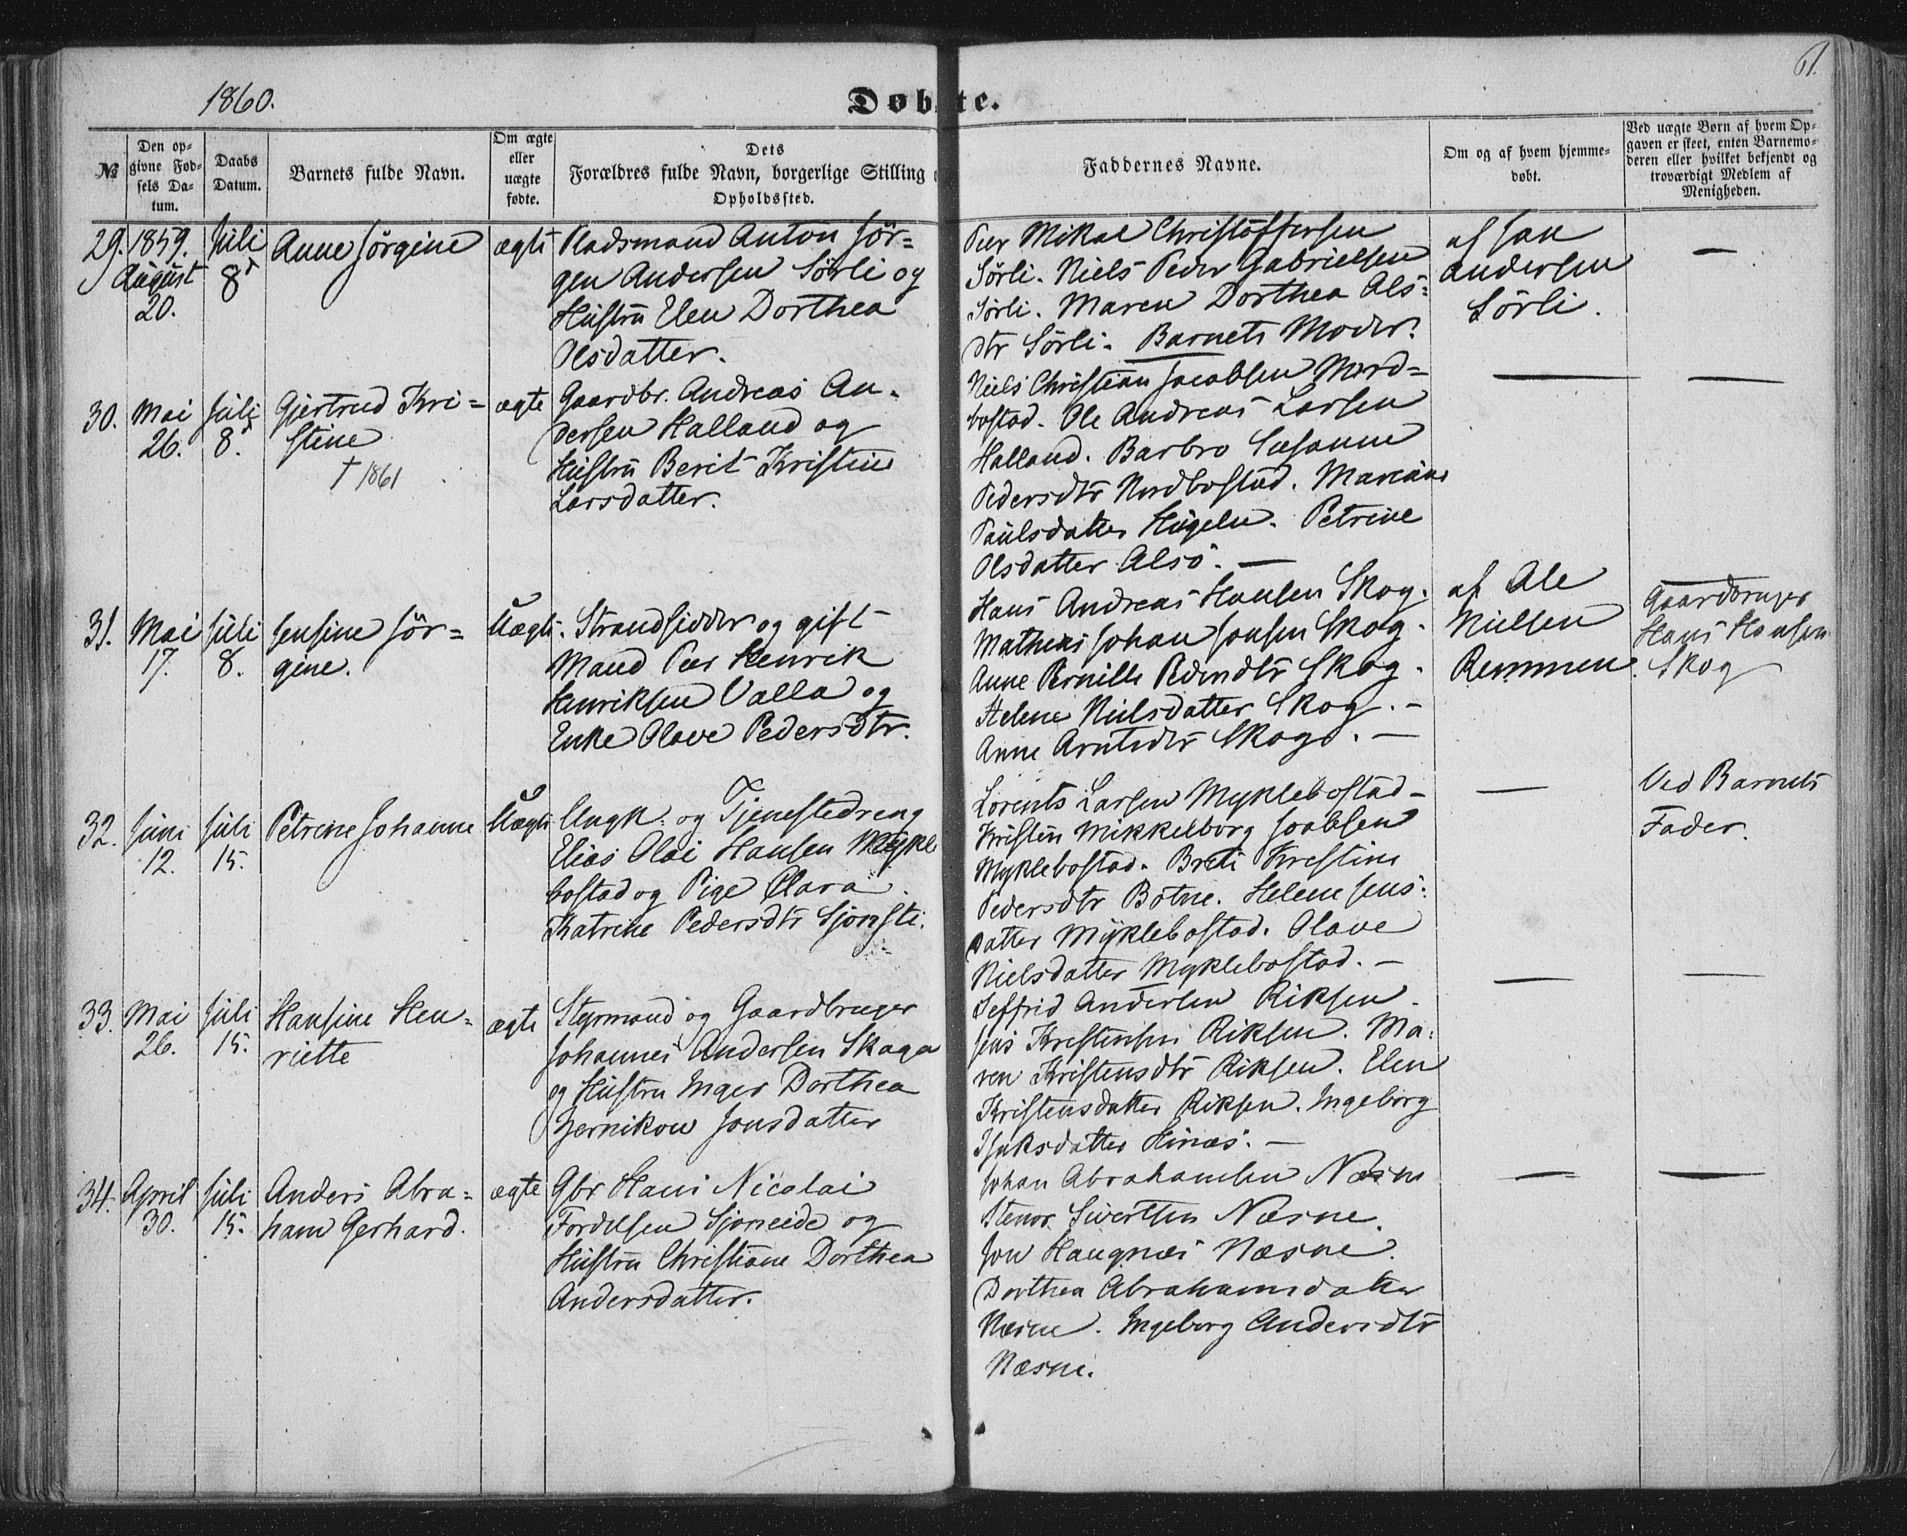 1860.
Døbte.
61.
№
Den op-
givne Fød-
sels Da-
tum.
Daabs
Datum.
Barnets fulde Navn.
Om ægte
eller
uægte
fødte.
Dets
Forældres fulde Navn, borgerlige Stilling
Opholdssted.
Faddernes Navne.
Om og af hvem hjemme-
døbt.
Ved uægte Børn af hvem Op-
gaven er skeet, enten Barnemo-
deren eller hvilket bekjendt og
troværdigt Medlem af
Menigheden.
29.
1859.
August
20.
Juli
8
Anne Jørgine
ægte
Pladsmand Anton Jør-
gen Andersen Sørli og
Hustru Elen Dorthea
Olsdatter.
Peer Mikal Christoffersen
Sørli. Niels Peder Gabrielsen
Sørli. Maren Dorthea Ols-
dtr Sørli. Barnets Moder.
af Jan
Andersen
Sørli.
—
30.
Mai
26.
Juli
8.
Gjertrud Kri-
stine
† 1861
ægte
Gaardbr. Andreas An-
dersen Halland og
Hustru Berit Kristine
Larsdatter.
Niels Christian Jacobsen Nord-
bostad. Ole Andreas Larsen
Halland. Barbro Susanne
Pedersdtr Nordbostad. Mariane
Paulsdatter Hugeln. Petrine
Olsdatter Alsö. —
—
—
31.
Mai
17.
Juli
8.
Jensine Jør-
gine.
Uægte
Strandsidder og gift
Mand Peer Henrik
Henriksen Valla og
Enke Olave Pedersdtr.
Hans Andreas Hansen Skog.
Mathias Johan Jonsen Skog.
Anne Pernille Pedersdtr Skog.
Helene Nielsdatter Skog. —
Anne Arntsdtr Skog. —
af Ole
Nielsen
Remmen.
Gaardbruger
Hans Hansen
Skog
32.
Juni
12.
Juli
15.
Petrine Johanne
Uægte
Ungk. og Tjenestedreng
Elias Olai Hansen Mykle
bostad og Pige Clara
Katrine Pedersdtr Sjonsti.
Lorents Larsen Myklebostad —
Kristen Mikkelborg Joabsen
Myklebostad. Breti Kristine
Pedersdtr Botne. Helene Jens-
datter Myklebostad. Olave
Nielsdatter Myklebostad. —
—
Ved Barnets
Fader.
33.
Mai
26.
Juli
15.
Hansine Hen-
riette
ægte
Styrmand og Gaardbruger
Johannes Andersen Skaga
og Hustru Inger Dorthea
Zernikow Jonsdatter
Seffrid Andersen Riksen.
Jens Kristensen Riksen. Ma-
ren Kristensdtr Riksen. Elen
Kristensdatter Riksen. Ingeborg
Isaksdatter Hinæs. —
—
—
34.
April
30.
Juli
15.
Anders Abra-
ham Gerhard.
ægte
Gbr Hans Nicolai
Fordelsen Sjoneide og
Hustru Christiane Dorthea
Andersdatter.
Johan Abrahamsen Næsne
Stenor Sivertsen Næsne.
Jon Haugnæs Næsne.
Dorthea Abrahamsdatter
Næsne. Ingeborg Andersdtr
Næsne.
—
—